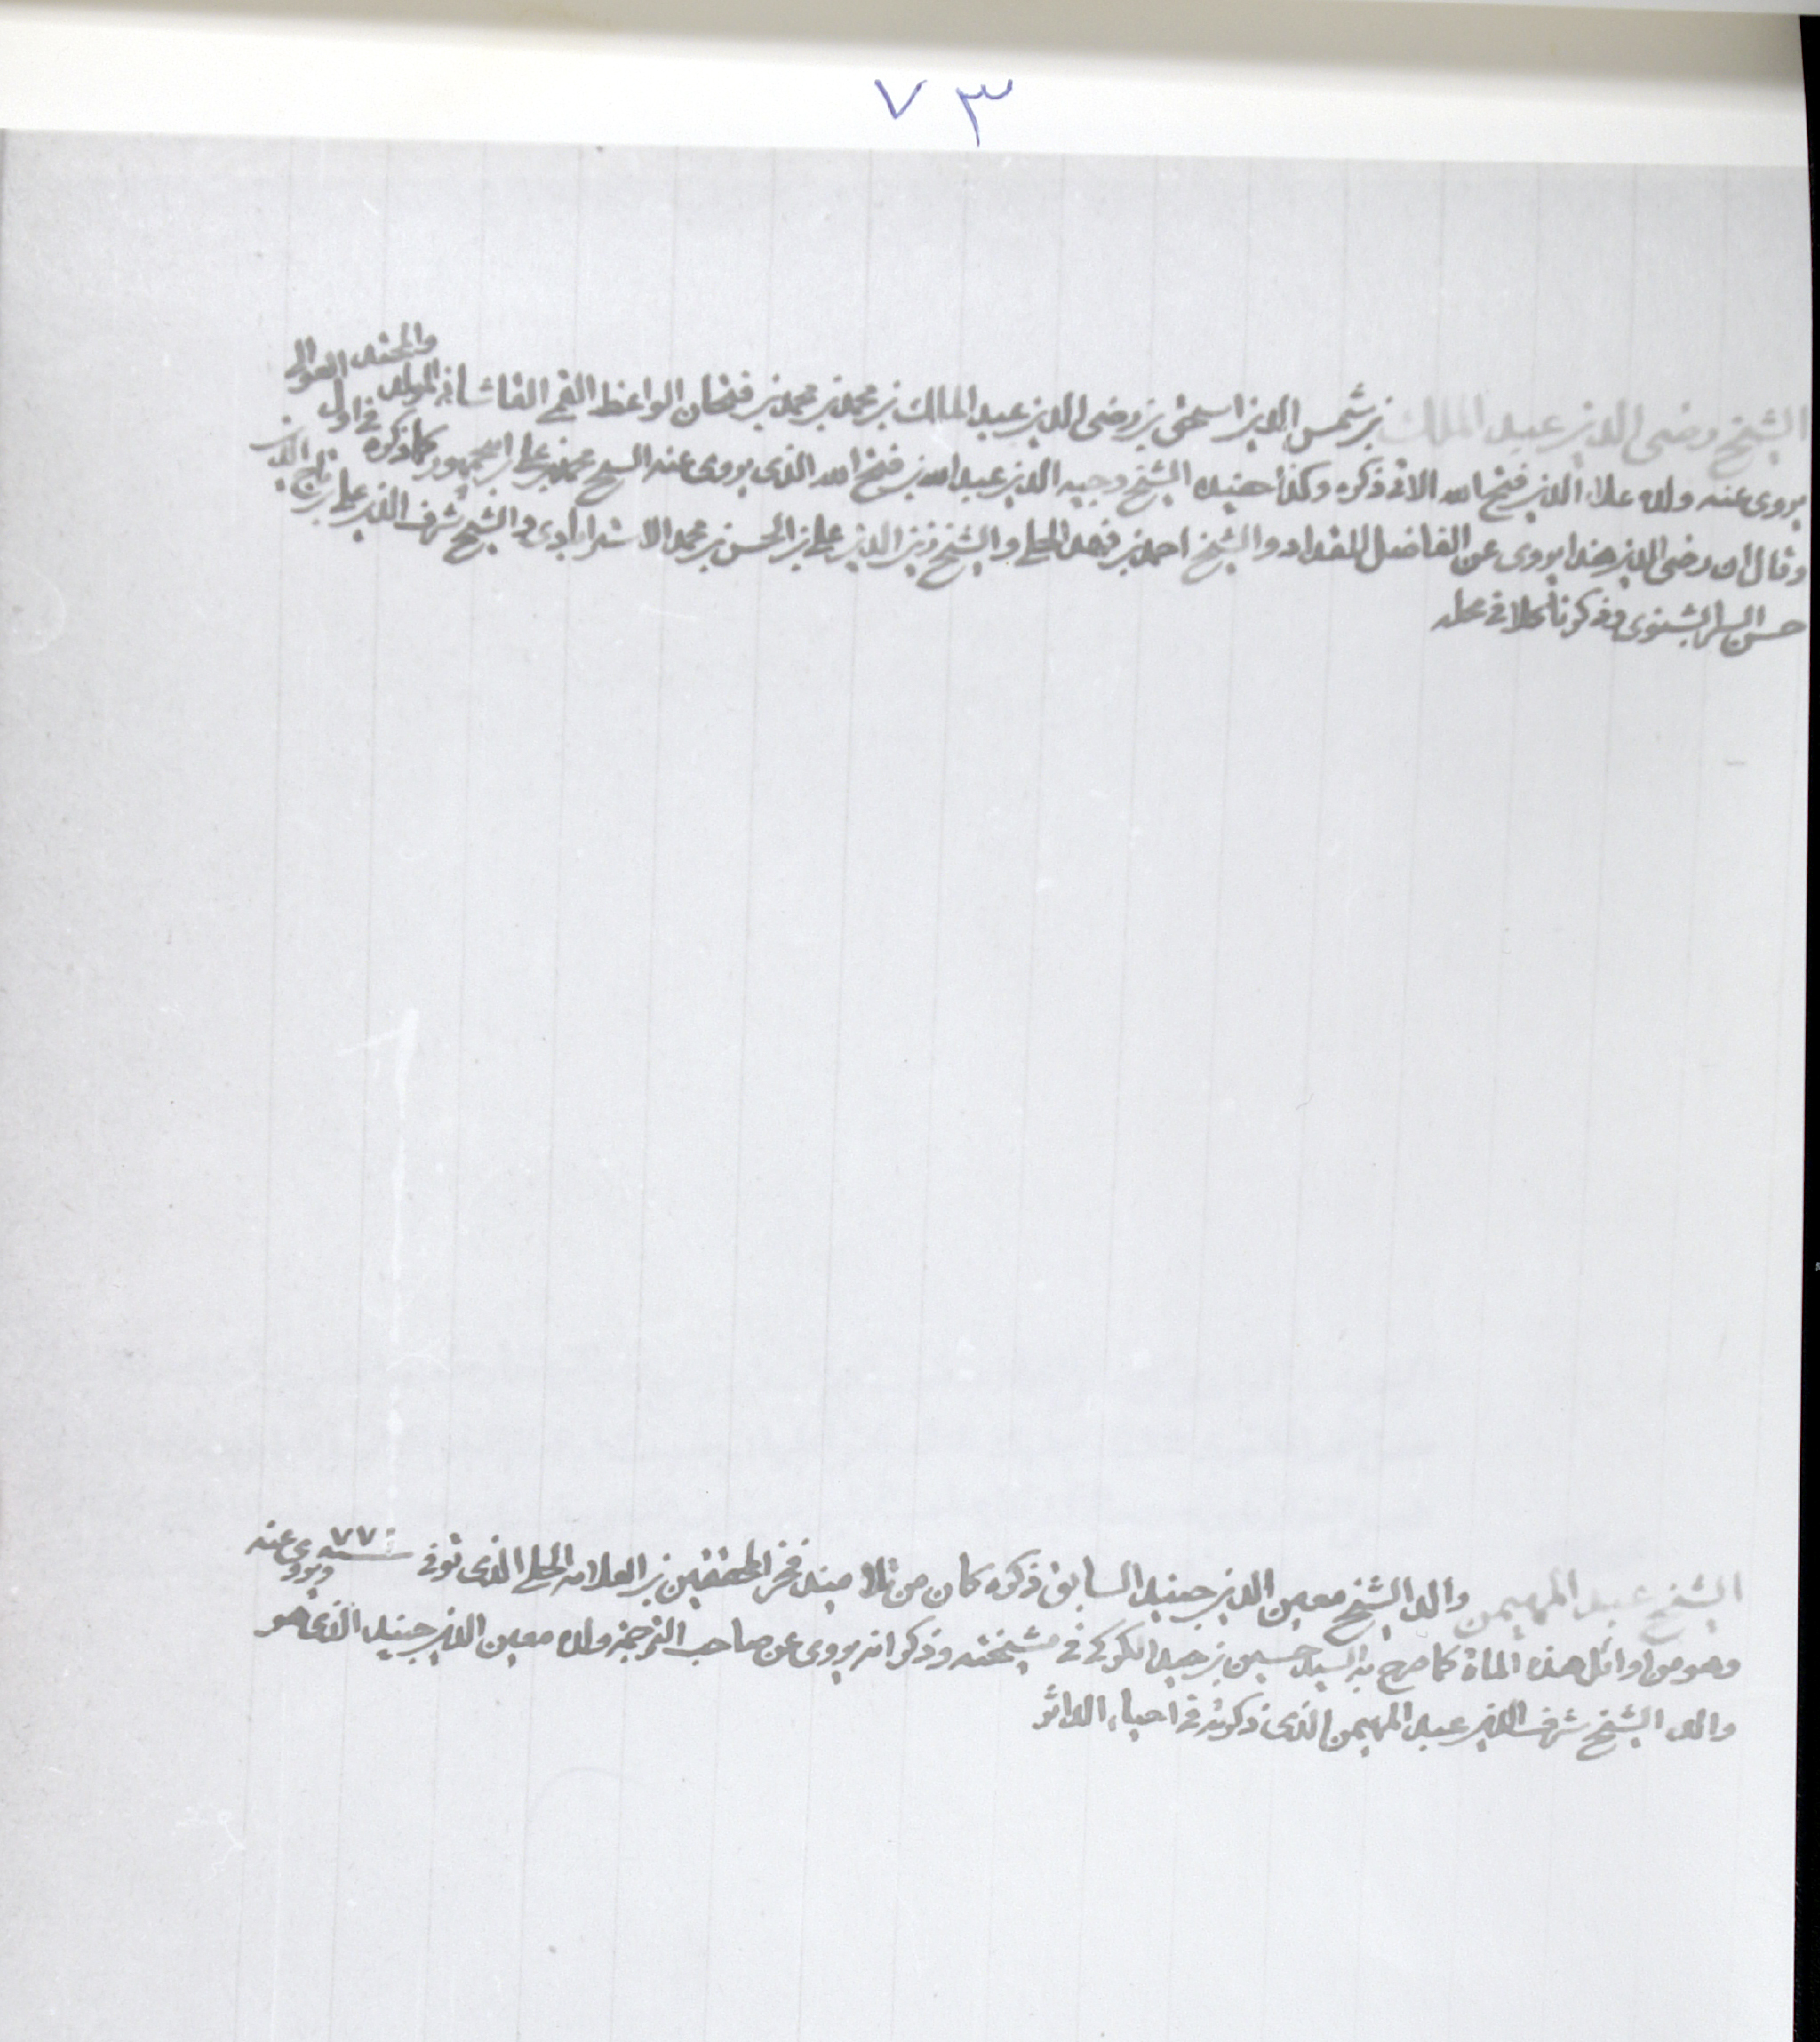 ٧٣
الشيخ رضى الدين عبد الملك بن شمس الدين اسحق بن رضى الدين عبد الملك بن محمد بن محمد بن فتحان الواعظ القمى القاشانى المولد والمحتد
يروى عنه ولده علاء الدين فتح الله الاتى ذكره وكذا حفيده الشيخ وجيه الدين عبد الله بن فتح الله الذى يروى عنه الشيخ محمد بن على بن ابى جمهور كما ذكره فى اول
وقال ان رضى الدين هذا يروى عن الفاضل المقداد والشيخ احمد بن فهد الحلى والشيخ زين الدين على بن الحسن بن محمد الاسترابادى والشيخ شرف الدين على بن تاج الدين
حسن السرابشنوى وذكرنا كلا فى محله
الشيخ عبد المهيمن والد الشيخ معين الدين جنيد السابق ذكره كان من تلاميذ فخر المحققين بن العلامه الحلى الذى توفى سنه ٧٧٠ ويروى عنه
وهو من اوائل هذه المائة كما صرح به السيد حسين بن حيدر الكركى فى مشيخته وذكر انه يروى عن صاحب الترجمة ولده معين الدين جنيد الذى هو
والد الشيخ شرف الدين عبد المهيمن الذى ذكرته فى احياء الداثر